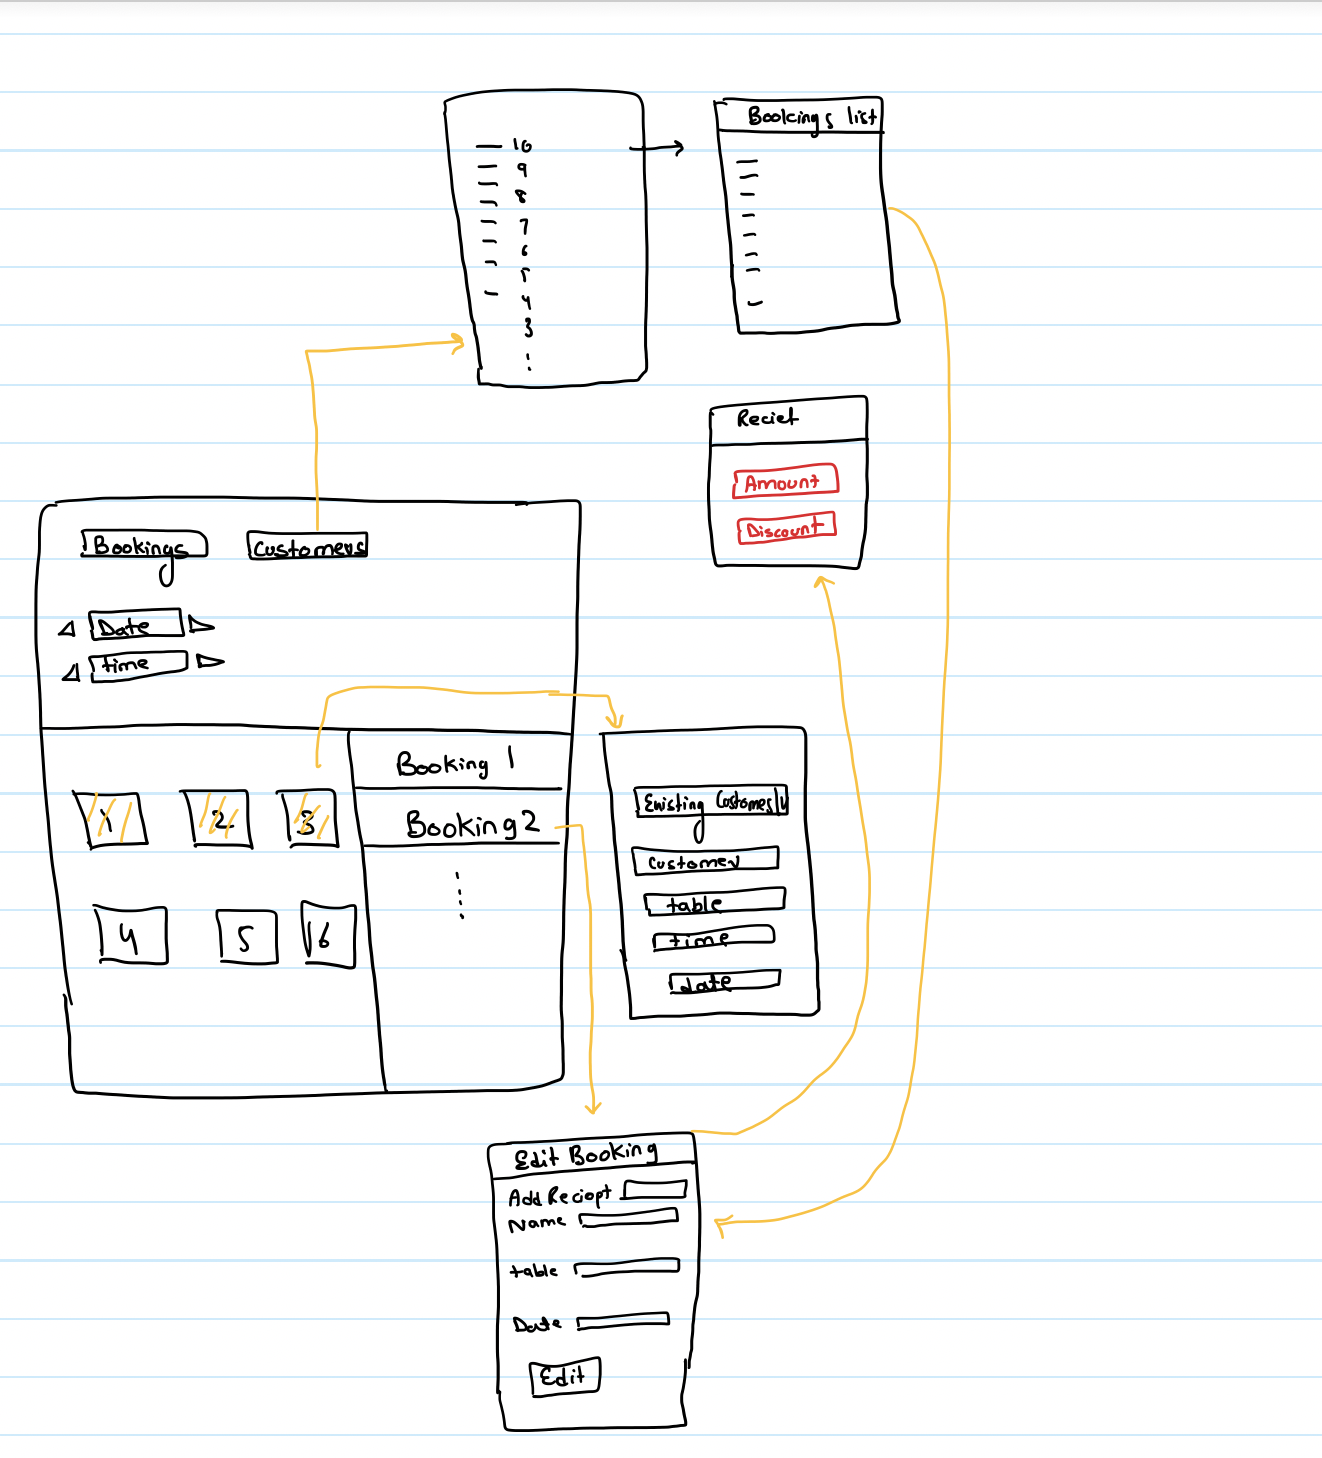 10
9
8
7
6
5
4
3
Bookings list
Reciet
Amount
Discount
Bookings Customers
Date
time
Booking 1
Booking 2
1 2 3
4 5 6
Existing Customer
customer
table
time
date
Edit Booking
Add Reciopt
Name
table
Date
Edit